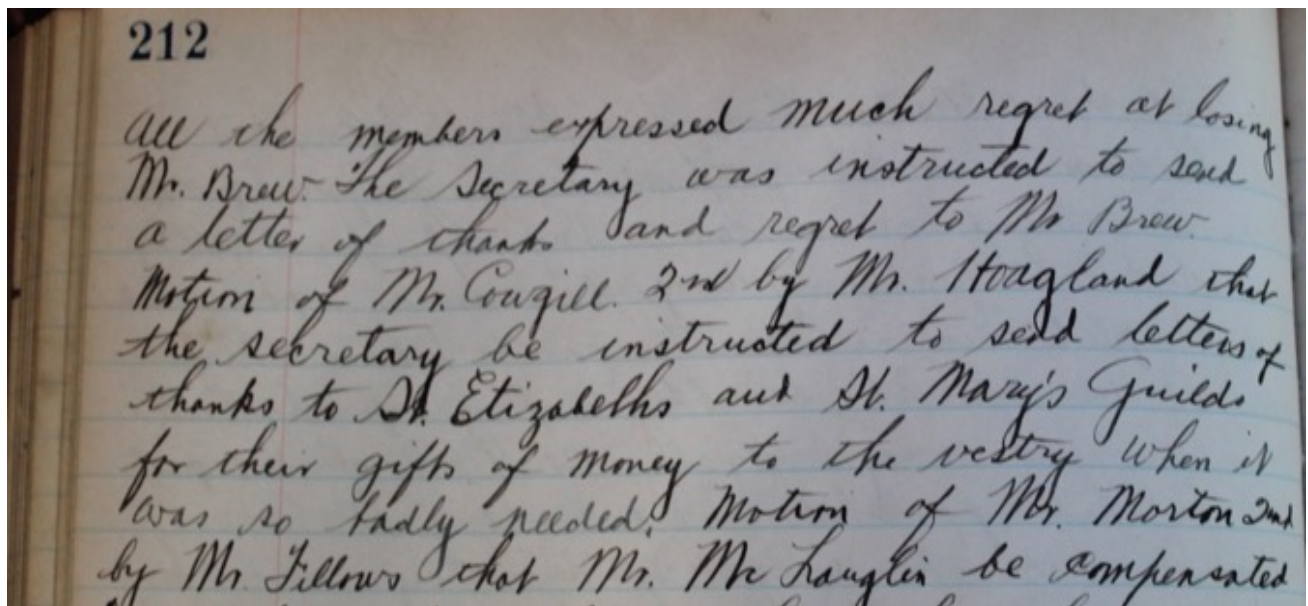 212
All the members expressed much regret at losing
Mr. Brew. The Secretary was instructed to send
a letter of thanks and regret to Mr Brew.
Motion of Mr. Cowgill. 2nd by Mr. Hoagland that
the secretary be instructed to send letters of
thanks to St. Elizabelhs and St. Mary's Guilds
for their gifts of money to the vestry when it
was so badly needed. Motion of Mr. Morton 2nd
by Mr. Fellows that Mr. Mc Lauglin be compensated